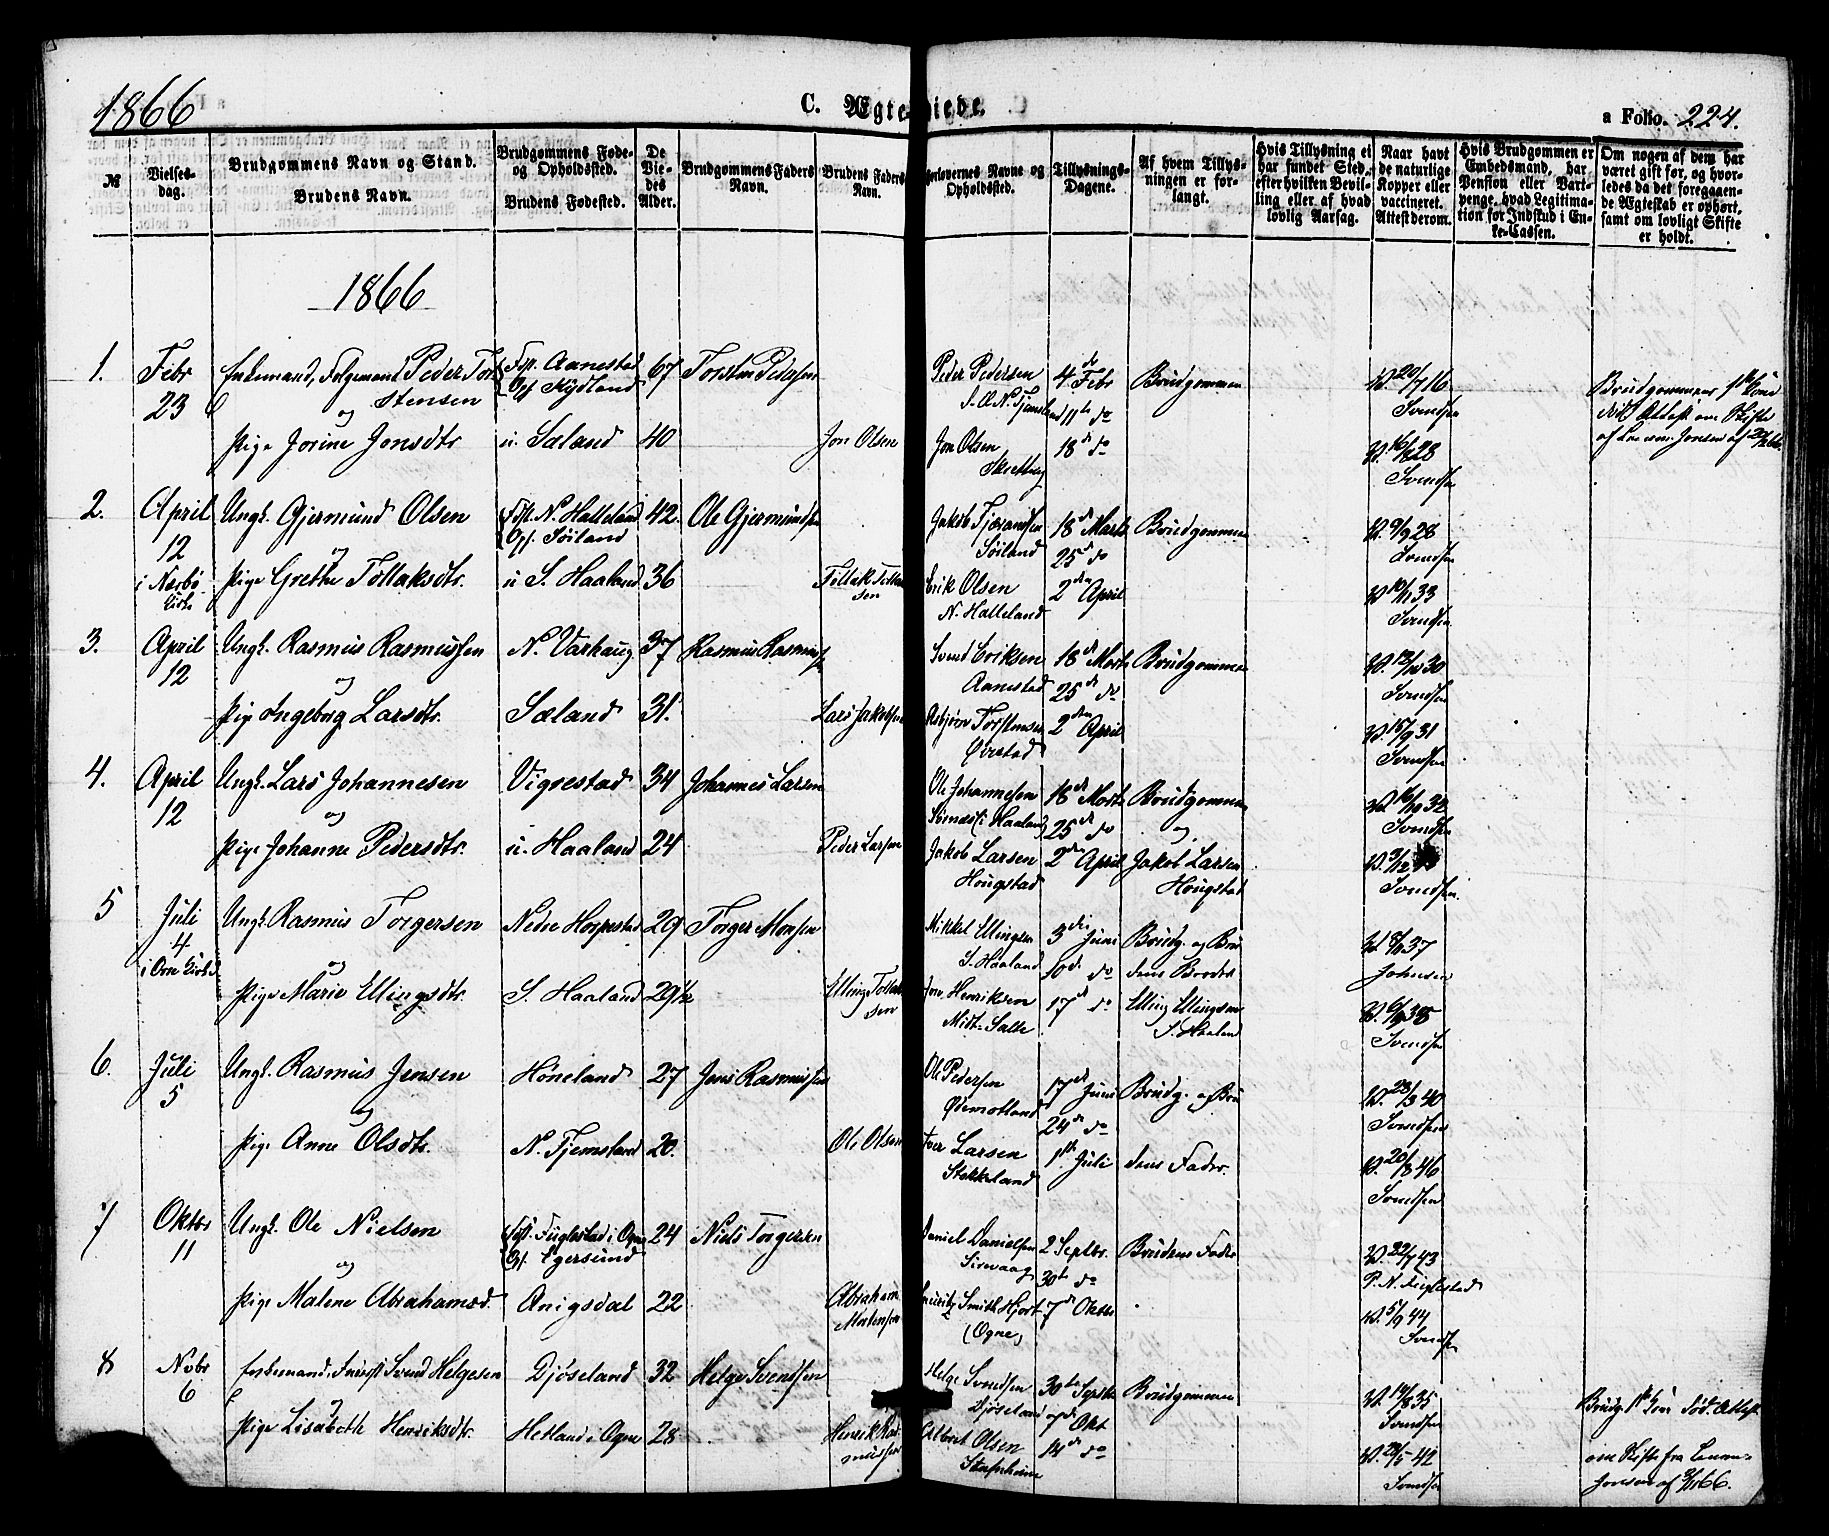 1866
C. Ægteviede.
a Folio. 224.
№
Vielsesdag.
Brudgommens Navn og Stand.
Brudens Navn.
Brudgommens Føde- og Opholdssted.
Brudens Fødested.
De Viedes Alder.
Brudgommens Faders Navn.
Brudens Faders Navn.
Forlovernes Navne og Opholdssted.
Tillysnings-Dagene.
Af hvem Tillysningen er forlangt.
Hvis Tillysning ei har fundet Sted, efter hvilken Bevilling eller af hvad lovlig Aarsag.
Naar havt de naturlige Kopper eller vaccineret. Attest derom.
Hvis Brudgommen er Embedsmand, har Pension eller Vartpenge, hvad Legitimation for Indskud i Enke-Cassen.
Om nogen af dem har været gift før, og hvorledes da det foregaaende Ægteskab er ophørt, samt om lovligt Skifte er holdt.
1866
1. Febr 23 Enkemand, Folgemand Peder Torstensen Fsp. Aanestad Op. Kydland 67 Torsten Pedersen Peder Pedersen N. Tjemsland 4de Febr 11te do Brudgommen W. 20/7 16 Svendsen Brudgommens 1ste Kone død, Attest om Skifte
og
Pige Jorine Jonsdtr u. Sæland 40 Jon Olsen Jon Olsen 18de do W. 28 Svendsen
2. April 12 i Nærbø Kirke Ungk. Gjermund Olsen Fsp. N. Halleland Op. Søiland 42. Ole Gjermundsen Jakob Tjerandsen Søiland 18de Marts 25de do Brudgommen W. 9/9 28 Svendsen
og
Pige Grethe Tollaksdtr. u S. Haaland 36 Tollak Tollaksen Erik Olsen N. Halleland 2den April W. 10/11 33 Svendsen
3. April 12 Ungk. Rasmus Rasmussen N. Varhaug 37 Rasmus Rasmussen Svend Eriksen Aanestad 18de Marts 25de do Brudgommen W. 30 Svendsen
og
Pige Ingeborg Larsdtr. Sæland 31. Lars Jakobsen Asbjørn Torstensen Øvrestad 2den April W. 15/9 31 Svendsen
4. April 12 Ungk. Lars Johannesen Vigrestad 34 Johannes Larsen Ole Johannesen 18de Marts 25de do Brudgommen og W. 16/10 32 Svendsen
og
Pige Johanne Pedersdtr. u. Haaland 24 Peder Larsen Jakob Larsen Hougstad 2den April Jakob Larsen Hougstad Svendsen
5 Juli 4 i Ogne Kirke Ungk. Rasmus Torgersen Nedre Horpestad 29 Torger Monsen Mikkel Ellingsen S. Haaland 3die Juni 10de do Brudg. og Brudens Broder W. 37 Johnsen
og
Pige Marie Ellingsdtr. S. Haaland 29½ Elling Tollaksen Henriksen Midt-Salte 17de do Elling Ellingsen S. Haaland W. 6/9 38 Svendsen
6. Juli 5 Ungk. Rasmus Jensen Høneland 27 Jens Rasmussen Ole Pedersen Ødemotland 17de Juni 24de do Brudg. og Bru W. 23/3 40 Svendsen
og
Pige Anne Olsdtr. N. Tjemsland 20. Ole Olsen Iver Larsen Stokkeland 1ste Juli dens Fader. W. 20/8 46 Svendsen
7 Oktbr 11 Ungk. Ole Nielsen Fsp. Fuglestad i Ogne Op. Egersund 24 Niels Torgersen Daniel Danielsen Sirevaag 2 Septbr. 30te do Brudens Fader W. 22/7 43 P. N. Fuglestad
og
Pige Malene Abrahamsd. Anigsdal 22 Abraham Mortensen Smith Hjort (Ogne) 7de Oktbr W. 5/9 44 Svendsen
8 Nvbr 6 Enkemand, Svend Helgesen Djøseland 32 Helge Svendsen Helge Svendsen Djøseland 30te Septbr 7de Okt Brudgommen W. 14/8 35 Svendsen Brudg. 1ste Kone død. Attest
Pige Lisabeth Henriksdtr. Hetland i Ogne 28 Henrik Rasmussen Albert Olsen 14de do W. 42 Svendsen om Skifte fra Jonsen af 66.